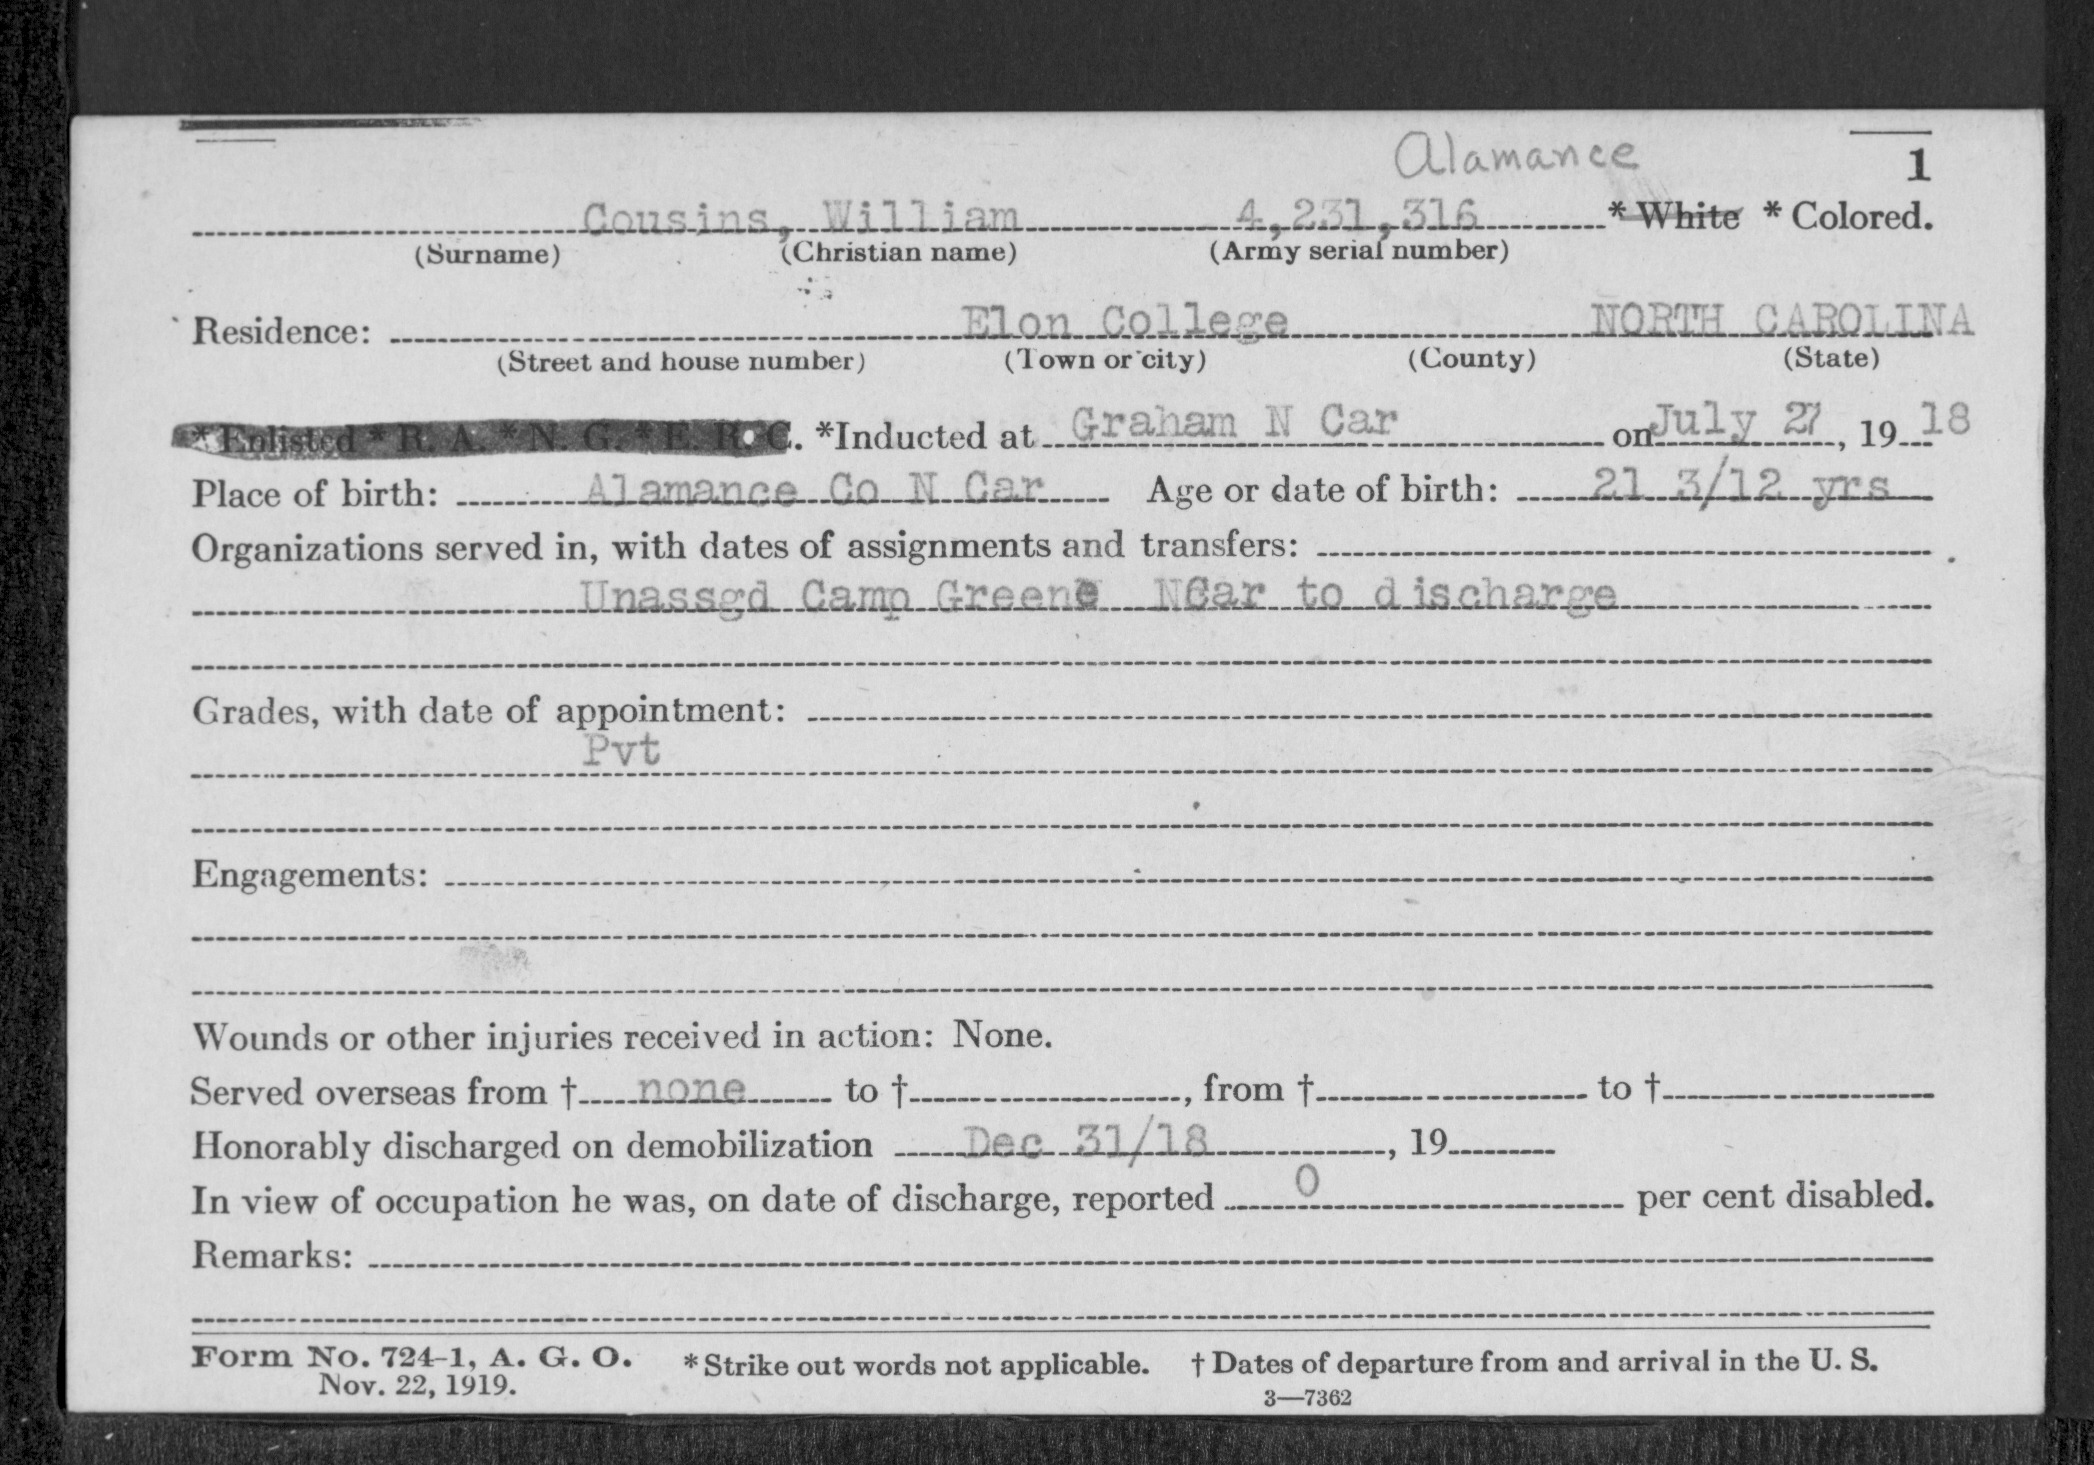 Alamance
1
Cousins, William 4,231,316 * White * Colored.
(Surname) (Christian name) (Army serial number)
Residence: Elon College NORTH CAROLINA
(Street and house number) (Town or city) (County) (State)
* Enlisted * R. A. * N. G. * E. R. C. *Inducted at Graham N Car on July 27, 19 18
Place of birth: Alamance Co N Car Age or date of birth: 21 3/12 yrs
Organizations served in, with dates of assignments and transfers:
Unassgd Camp Greene NCar to discharge
Grades, with date of appointment:
Pvt
Engagements:
Wounds or other injuries received in action: None.
Served overseas from † none to †, from † to †
Honorably discharged on demobilization Dec 31/18, 19
In view of occupation he was, on date of discharge, reported 0 per cent disabled.
Remarks:
Form No. 724-1, A. G. O. * Strike out words not applicable. † Dates of departure from and arrival in the U. S.
Nov. 22, 1919. 3—7362